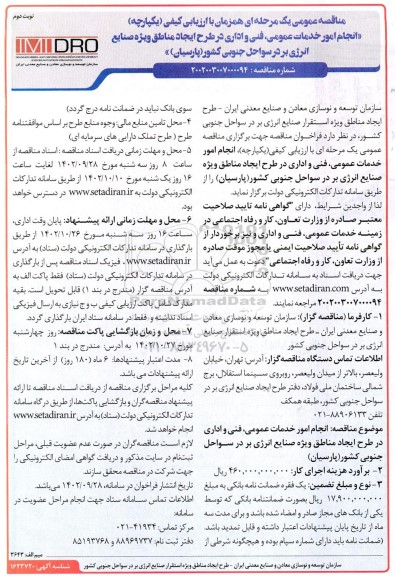 نوبت دوم
مناقصه عمومی یک مرحله ای همزمان با ارزیابی کیفی (یکپارچه)
«انجام امور خدمات عمومی، فنی و اداری در طرح ایجاد مناطق ویژه صنایع
انرژی بر در سواحل جنوبی کشور (پارسیان)»
IMIDRO
سازمان توسعه و نوسازی معادن و صنایع معدنی ایران
شماره مناقصه: ۲۰۰۲۰۰۳۰۰۷۰۰۰۰۹۴
سازمان توسعه و نوسازی معادن و صنایع معدنی ایران - طرح
ایجاد مناطق ویژه استقرار صنایع انرژی بر در سواحل جنوبی
کشور، در نظر دارد فراخوان مناقصه جهت برگزاری مناقصه
عمومی یک مرحله ای با ارزیابی کیفی (یکپارچه)، انجام امور
خدمات عمومی، فنی و اداری در طرح ایجاد مناطق ویژه
صنایع انرژی بر در سواحل جنوبی کشور (پارسیان) را از
طریق سامانه تدارکات الکترونیکی دولت برگزار نماید.
لذا از واجدین شرایط، دارای "گواهی نامه تایید صلاحیت
معتبر صادره از وزارت تعاون، کار و رفاه اجتماعی در
زمینه خدمات عمومی، فنی و اداری و نیز برخوردار از
گواهی نامه تأیید صلاحیت ایمنی یا مجوز موقت صادره
از وزارت تعاون، کار و رفاه اجتماعی" دعوت به عمل می آید
جهت دریافت اسناد به سامانه تدارکات الکترونیکی دولت
به آدرس www.setadiran.com به شماره مناقصه
۲۰۰۲۰۰۳۰۰۷۰۰۰۰۹۴ مراجعه نمایند.
۱- کارفرما (مناقصه گزار): سازمان توسعه و نوسازی معادن
و صنایع معدنی ایران - طرح ایجاد مناطق ویژه استقرار صنایع
انرژی بر در سواحل جنوبی کشور
اطلاعات تماس دستگاه مناقصه گزار: آدرس: تهران، خیابان
ولیعصر، بالاتر از میدان ولیعصر، روبروی سینما استقلال، برج
شمالی ساختمان ملی فولاد، دفتر طرح ایجاد صنایع انرژی بر در
سواحل جنوبی کشور، طبقه همکف
تلفن ۸۸۹۰۶۱۳۳-۰۲۱
موضوع مناقصه: انجام امور خدمات عمومی، فنی و اداری
در طرح ایجاد مناطق ویژه صنایع انرژی بر در سواحل
جنوبی کشور (پارسیان)
۲- برآورد هزینه اجرای کار: ۴۶۰,۰۰۰,۰۰۰,۰۰۰ ریال
۳- نوع و مبلغ تضمین: یک فقره ضمانت نامه بانکی به مبلغ
۱۷,۹۰۰,۰۰۰,۰۰۰ ریال بصورت ضمانتنامه بانکی که توسط
یکی از بانک های مجاز صادر و امضا شده باشد و برای مدت سه
ماه از تاریخ پایان پیشنهادات اعتبار داشته و قابل تمدید باشد.
(ضمانت نامه باید دارای شماره سپام بوده و هیچگونه شرطی از
سوی بانک نباید در ضمانت نامه درج گردد)
۴- محل تامین منابع مالی: وجوه منابع طرح بر اساس موافقتنامه
طرح (طرح تملک دارایی های سرمایه ای)
۵- محل و مهلت زمانی دریافت اسناد مناقصه: اسناد مناقصه از
ساعت ۸ روز سه شنبه مورخ ۱۴۰۲/۰۹/۲۸ لغایت ساعت
۱۶ روز یک شنبه مورخ ۱۴۰۲/۱۰/۱۰ از طریق سامانه تدارکات
الکترونیکی دولت به www.setadiran.ir در دسترس خواهد
بود.
۶- محل و مهلت زمانی ارائه پیشنهاد: پایان وقت اداری،
ساعت ۱۶ روز سه شنبه مورخ ۱۴۰۲/۱۰/۲۶ از طریق
بارگذاری در سامانه تدارکات الکترونیکی دولت (ستاد) به آدرس
www.setadiran.ir، فیزیک اسناد مناقصه پس از بارگذاری
در سامانه تدارکات الکترونیکی دولت (ستاد) فقط پاکت الف به
آدرس مناقصه گزار (مندرج در بند ۱) قابل تحویل است. بقیه
مدارک شامل پاکت ارزیابی کیفی ب و ج نیازی به ارسال فیزیکی
اسناد نداشته و فقط در سامانه ستاد ایران بارگذاری گردد.
۷- محل و زمان بازگشایی پاکت مناقصه: روز چهارشنبه
مورخ ۱۴۰۲/۱۰/۲۷ به آدرس: مندرج در بند ۱
۸- مدت اعتبار پیشنهادها: ۶ ماه (۱۸۰ روز) از آخرین تاریخ
ارائه پیشنهادات می باشد.
کلیه مراحل برگزاری مناقصه از دریافت اسناد مناقصه تا ارائه
پیشنهاد مناقصه گران و بازگشایی پاکت ها، از طریق درگاه سامانه
تدارکات الکترونیکی دولت (ستاد) به آدرس www.setadiran.ir
انجام خواهد شد.
لازم است مناقصه گران در صورت عدم عضویت قبلی، مراحل
ثبت نام در سایت مذکور و دریافت گواهی امضای الکترونیکی را
جهت شرکت در مناقصه محقق سازند.
تاریخ انتشار فراخوان در سامانه، ۱۴۰۲/۰۹/۲۸ می باشد.
اطلاعات تماس سامانه ستاد جهت انجام مراحل عضویت در
سامانه:
مرکز تماس: ۴۱۹۳۴-۰۲۱
دفتر ثبت نام: ۸۸۹۶۹۷۳۷ و ۸۵۱۹۳۷۶۸
میم الف: ۳۶۴۳
سازمان توسعه و نوسازی معادن و صنایع معدنی ایران - طرح ایجاد مناطق ویژه استقرار صنایع انرژی بر در سواحل جنوبی کشور
شناسه آگهی: ۱۶۳۳۷۲۰